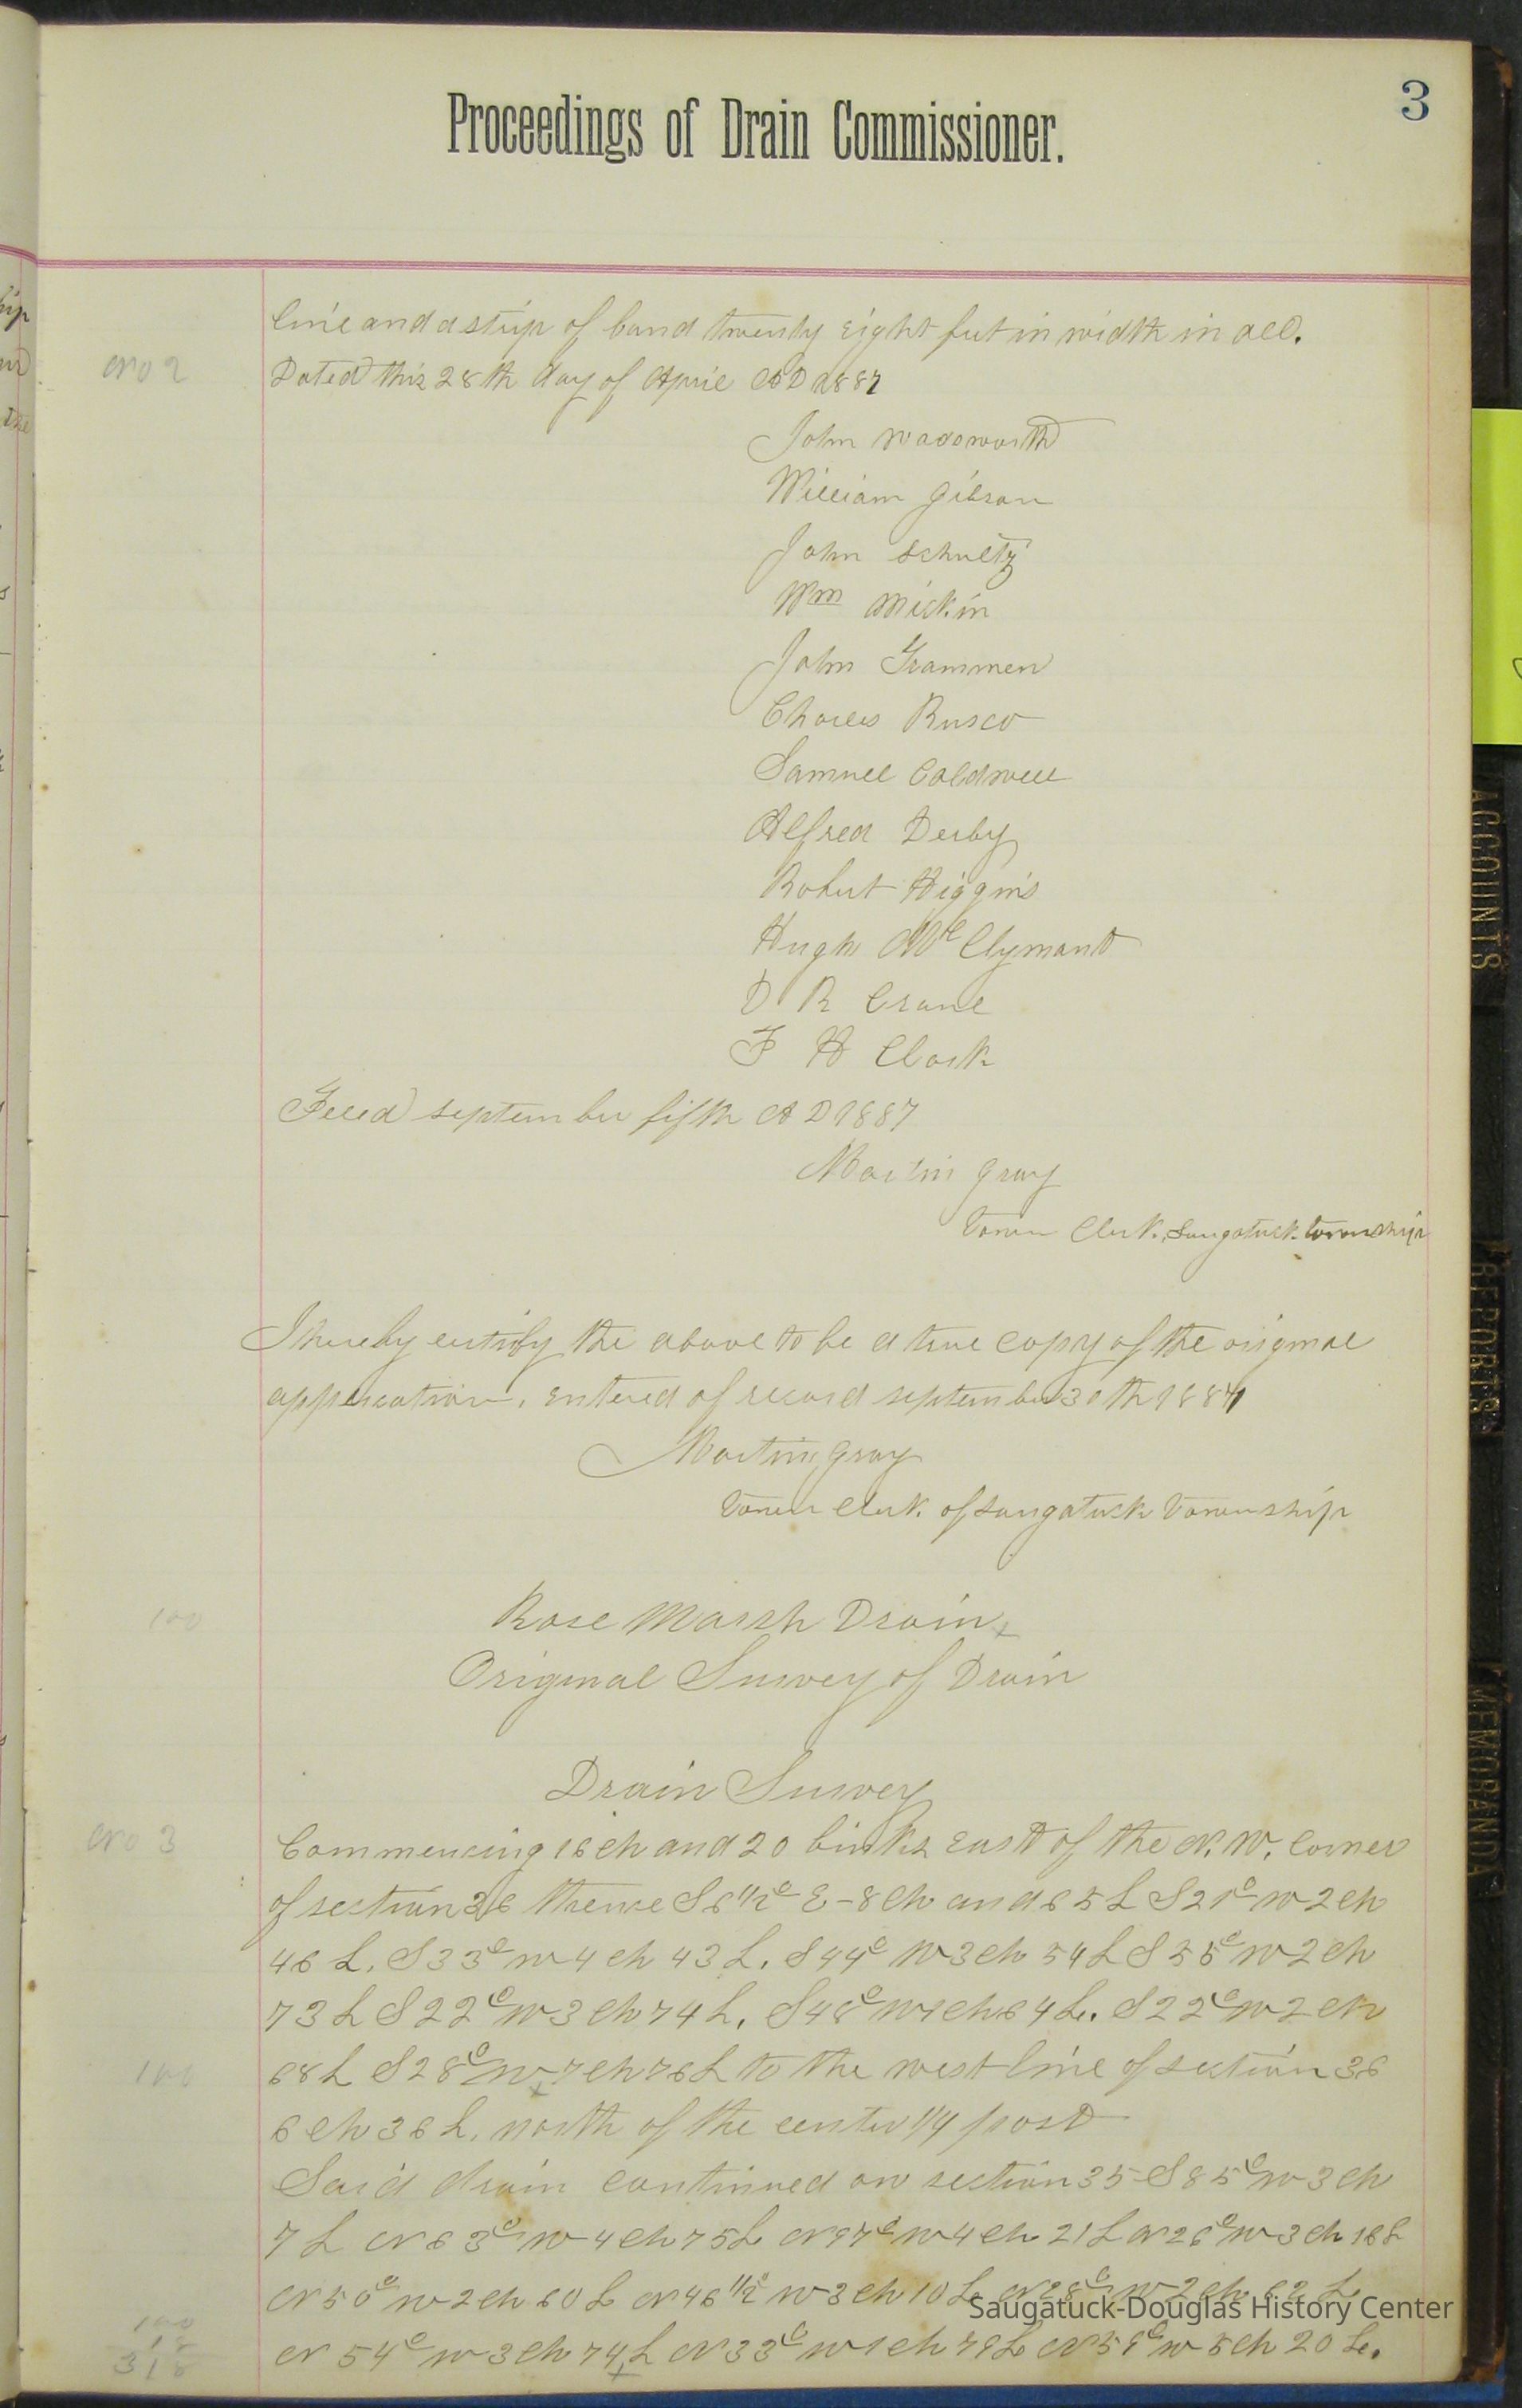 3
Proceedings of Drain Commissioner.
line and a strip of land twenty eight feet in width in all.
No 2
Dated this 28th day of April AD 1887
John Wadsworth
William Gibson
John Schultz
Wm Miskin
John Grammen
Charles Rusco
Samuel Caldwell
Alfred Derby
Robert Higgins
Hugh McClymant
D R Crane
F H Clark
Filed september fifth A D 1887
Martin Gray
Town Clerk, Saugatuck township
I hereby certify the above to be a true copy of the original
application, entered of record september 30th 1887
Martin Gray
Town Clerk of Saugatuck Township
100
Rose Marsh Drain
Original Survey of Drain
Drain Survey
No 3
Commencing 16 ch and 20 links east of the N.W. corner
of section 36 thence S 6 1/2° E - 8 ch and 65 L S 21° W 2 ch
46 L. S 33° W 4 ch 43 L. S 44° W 3 ch 54 L S 55° W 2 ch
73 L S 22° W 3 ch 74 L. S 48° W 1 ch 64 L. S 22° W 2 ch
68 L S 28° W 7 ch 76 L to the west line of section 36
100
6 ch 36 L. north of the center 1/4 post
Said drain continued on section 35 S 85° W 3 ch
7 L N 63° W 4 ch 75 L N 97° W 4 ch 21 L N 26° W 3 ch 16 L
N 50° W 2 ch 60 L N 46 1/2° W 3 ch 10 L N 28° W 2 ch 62 L
N 54° W 3 ch 74 L N 33° W 1 ch 79 L N 59° W 5 ch 20 L.
100
318
ACCOUNTS
REPORTS
MEMORANDA
Saugatuck-Douglas History Center